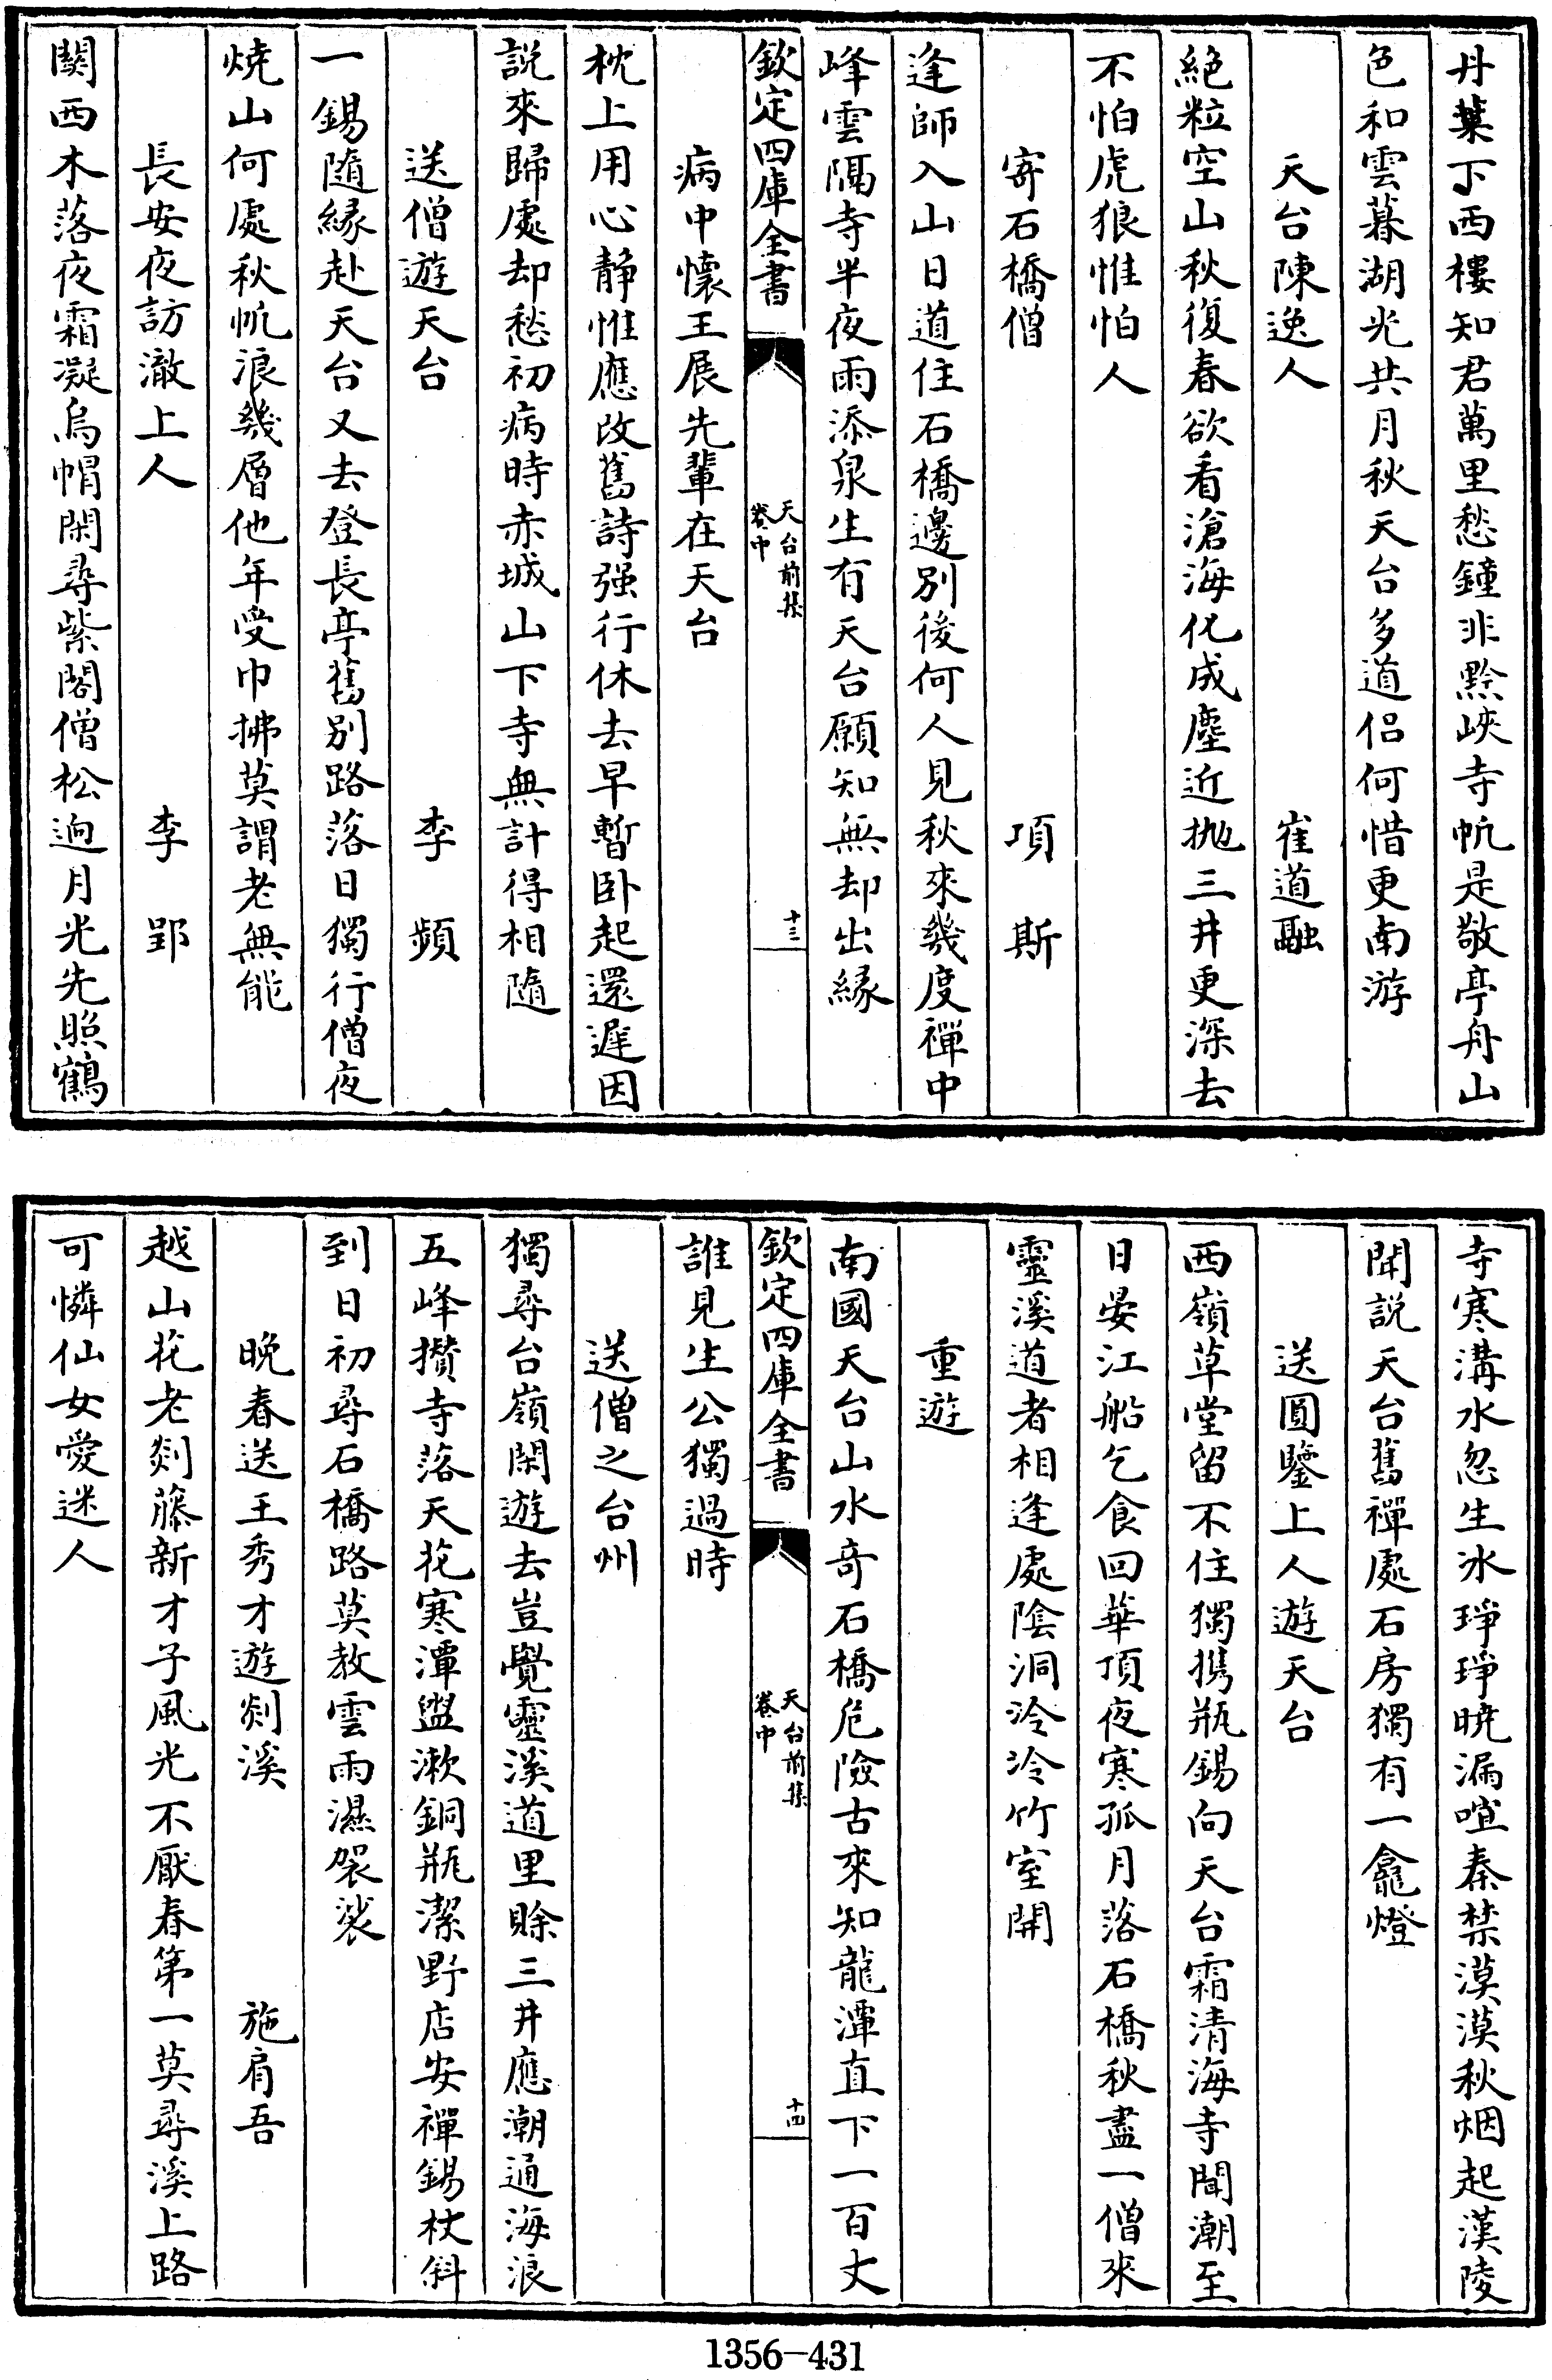 丹葉下西樓知君萬里愁鐘非黔峽寺帆是敬亭舟山
色和雲暮湖光共月秋天台多道侣何惜更南游
天台陳逸人　崔道融
絶粒空山秋復春欲看滄海化成塵近抛三井更深去
不怕虎狼惟怕人
寄石橋僧　項斯
逢師入山日道住石橋邊别後何人見秋來幾度禪中
峰雲隔寺半夜雨添泉生有天台願知無却出緣
欽定四庫全書　天台前集卷中　十三
病中懷王展先輩在天台
枕上用心静惟應改舊詩强行休去早暫卧起還遲因
説來歸處却愁初病時赤城山下寺無計得相隨
送僧遊天台　李頻
一錫隨緣赴天台又去登長亭舊别路落日獨行僧夜
燒山何處秋帆浪幾層他年受巾拂莫謂老無能
長安夜訪澈上人　李郢
關西木落夜霜凝烏帽閑尋紫閣僧松迥月光先照鶴
寺寒溝水忽生冰琤琤曉漏喧秦禁漠漠秋烟起漢陵
聞説天台舊禪處石房獨有一龕燈
送圓鑒上人遊天台
西嶺草堂留不住獨携瓶錫向天台霜清海寺聞潮至
日晏江船乞食回華頂夜寒孤月落石橋秋盡一僧來
靈溪道者相逢處陰洞泠泠竹室開
重遊
南國天台山水奇石橋危險古來知龍潭直下一百丈
欽定四庫全書　天台前集卷中　十四
誰見生公獨過時
送僧之台州
獨尋台嶺閑遊去豈覺靈溪道里賒三井應潮通海浪
五峰攅寺落天花寒潭盥漱銅瓶潔野店安禪錫杖斜
到日初尋石橋路莫教雲雨濕袈裟
晚春送王秀才遊剡溪　施肩吾
越山花老剡藤新才子風光不厭春第一莫尋溪上路
可憐仙女愛迷人
1356-431